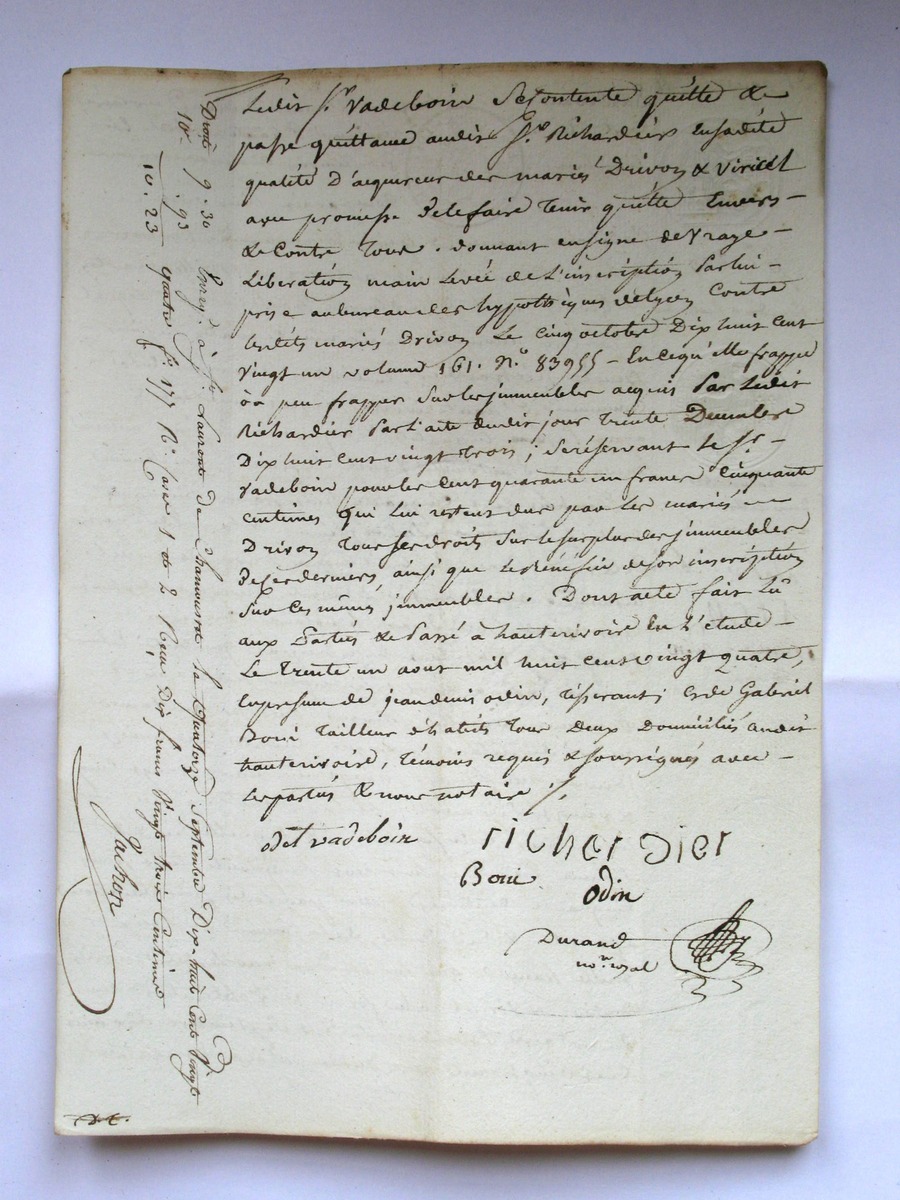 Ledit Sr. Vadeboin Se Contente quitte &
passe quittance audit Sr. Richardier En sadite
qualité D'acquereur des mariés Drivon & Viricel
avec promesse De le faire tenir quitte Envers
& Contre Tous. donnant en signe de Vraye
Liberation main Levée de L'inscription Par lui
prise au bureau des hypothèques de Lyon Contre
lesdits mariés Drivon Le Cinq octobre Dix huit cent
Vingt un volume 161. No. 83955 En ce qu'elle frappe
ou peu frapper Sur les jmmeubles acquis Par Ledit
Richardier Par L'acte dudit jour trente Decembre
Dix huit cent vingt trois ; se réservant Le Sr.
Vadeboin pour les Cent quarante un francs Cinquante
centimes qui Lui restent dus par Les mariés
Drivon Tous ses droits Sur le surplus des jmmeubles
De ces derniers, ainsi que Le Bénéfice de son inscription
Sur Ces mêmes jmmeubles. Dont acte fait Lû
aux Parties & Passé à hauterivoire En L'étude
Le Trente un aout mil huit Cent vingt quatre,
En presence de jean denis odin, tisserant ; et de Gabriel
Boui Tailleur d'habits Tous Deux Domiciliés audit
hauterivoire, Témoins requis & soussignés avec
Les parties & nous notaire
Vadeboin
richerdier
Boui
Odin
Durand
nore. royal
Droits 9. 30
10e . 93
10. 23
Enreg. à St. Laurent de Chamousset le Quatorze Septembre Dix-huit Cent Vingt
quatre fo. 177 Ro. Case 1 et 2 Reçu Dix francs Vingt trois Centimes